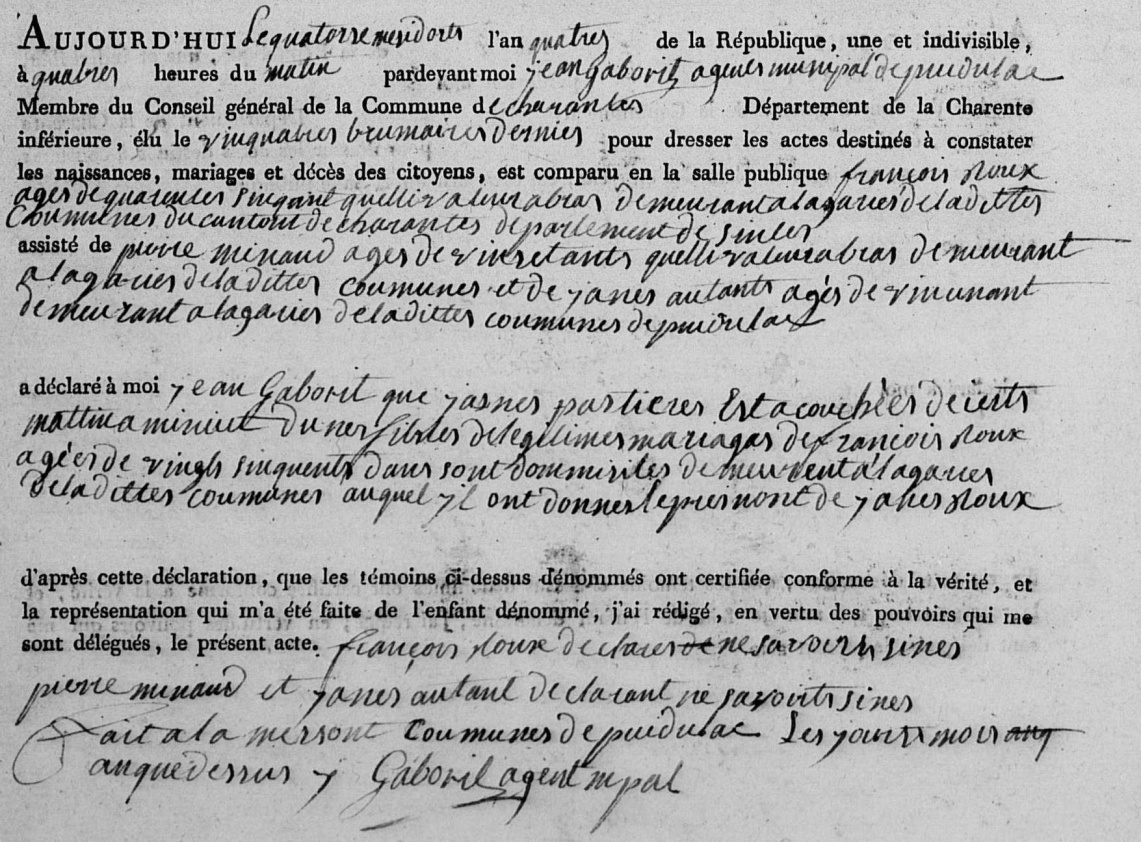 AUJOURD'HUI Lequatorse mesidorts l'an quatres de la République, une et indivisible,
à quatres heures du matin pardevant moi jean gaborit agenes munipal de puidulac
Membre du Conseil général de la Commune de charantes Département de la Charente
inférieure, élu le vinquatres brumaires dernies pour dresser les actes destinés à constater
les naissances, mariages et décès des citoyens, est comparu en la salle publique françois Roux
ages de quarentes sinqant demeurant alagaries deladittes
Coummenes du cantont de charantes departement de sintes
assisté de pierre minaud ages de demeurant
alagaries deladittes coumunes et de janes autants agés de
demeurant alagaries deladittes coumunes de puidulac
a déclaré à moi jean Gaborit que jasnes partieres Est acouchées de cests
mattin a miniut dunes filies delegitimes mariagas de francois Roux
agées de vingts sinquents dans sont dommisiles demeurent alagaries
deladittes coumunes auquel yl ont donner le presnont de janes Roux
d'après cette déclaration, que les témoins ci-dessus dénommés ont certifiée conforme à la vérité, et
la représentation qui m'a été faite de l'enfant dénommé, j'ai rédigé, en vertu des pouvoirs qui me
sont délégués, le présent acte. françois Roux declares ne savoirs sines
pierre minaud et janes autant declarant ne savoirts sines
fait a la mersont Coumunes de puidulac Les jours mois
anquedessus J Gaborit agent mpal